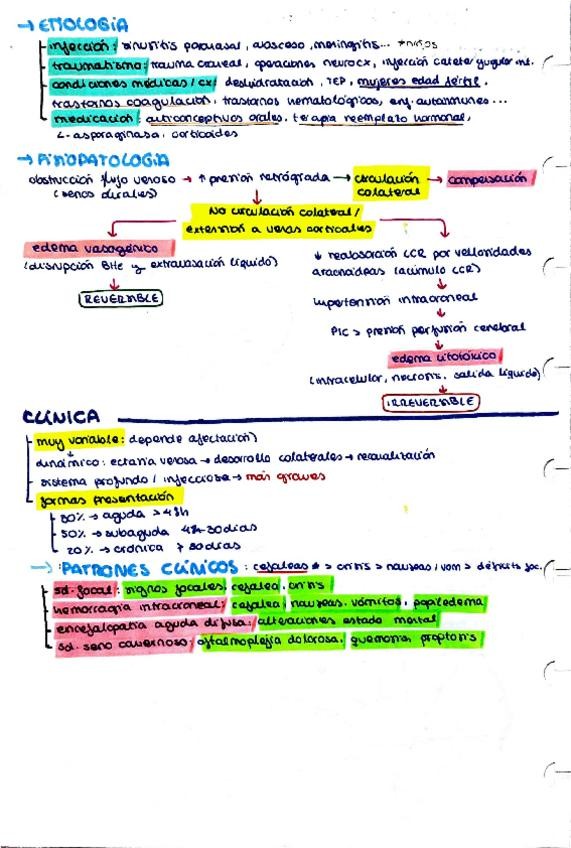 → ETIOLOGÍA
infección: sinusitis paranasal, absceso, meningitis... *niños
traumatismo: trauma craneal, operaciones neurocx, inyección catéter yugular int.
condiciones médicas/cx: deshidratación, TEP, mujeres edad fértil,
trastornos coagulación, trastornos hematológicos, enf. autoinmunes...
medicación: anticonceptivos orales, terapia reemplazo hormonal,
L-asparaginasa, corticoides
→ FISIOPATOLOGÍA
obstrucción flujo venoso → ↑ presión retrógrada → circulación colateral → compensación
(senos durales)
No circulación colateral/
extensión a venas corticales
edema vasogénico
(disrupción BHE y extravasación líquido)
REVERSIBLE
↓ reabsorción LCR por vellosidades
aracnoideas (acúmulo LCR)
hipertensión intracraneal
PIC > presión perfusión cerebral
edema citotóxico
(intracelular, necrosis, salida líquido)
IRREVERSIBLE
CLÍNICA
muy variable: depende afectación
dinámico: ectasia venosa → desarrollo colaterales → recanalización
sistema profundo / infecciosa → más graves
formas presentación
30% → aguda > 48h
50% → subaguda 48h-30días
20% → crónica > 30días
→ PATRONES CLÍNICOS: cefaleas * > crisis > nauseas/vom > déficits foc.
sd. focal: signos focales, cefalea, crisis
hemorragia intracraneal: cefalea, nauseas, vómitos, papiledema
encefalopatía aguda difusa: alteraciones estado mental
sd. seno cavernoso: oftalmoplejia dolorosa, quemosis, proptosis